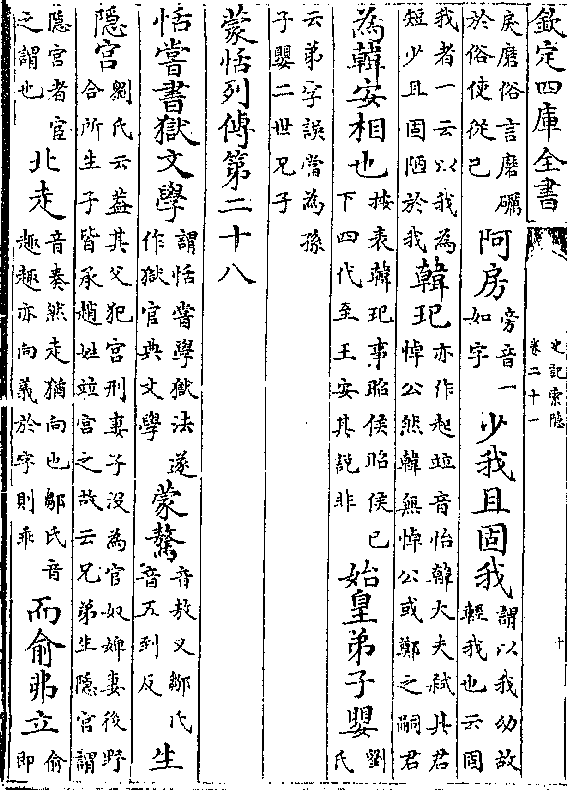 欽定四庫全書
史記索隱
卷二十一
十
戾磨俗言磨礪
於俗使從己
阿房
旁音一
如字
少我且固我
謂以我幼故
輕我也云固
我者一云以我為
短少且固陋於我
韓玘
亦作起竝音怡韓大夫弑其君
悼公然韓無悼公或鄭之嗣君
為韓安相也
按表韓玘事昭侯昭侯已
下四代至王安其説非
始皇弟子嬰
劉
氏
云弟字誤當為孫
子嬰二世兄子
蒙恬列傳第二十八
恬嘗書獄文學
謂恬嘗學獄法遂
作獄官典文學
蒙驁
音敖又鄒氏
音五到反
生
隠宫
劉氏云葢其父犯宫刑妻子没為官奴婢妻後野
合所生子皆承趙姓竝宫之故云兄弟生隠宫謂
隠宫者宦
之謂也
北走
音奏然走猶向也鄒氏音
趣趣亦向義於字則乖
而俞弗立
俞
即